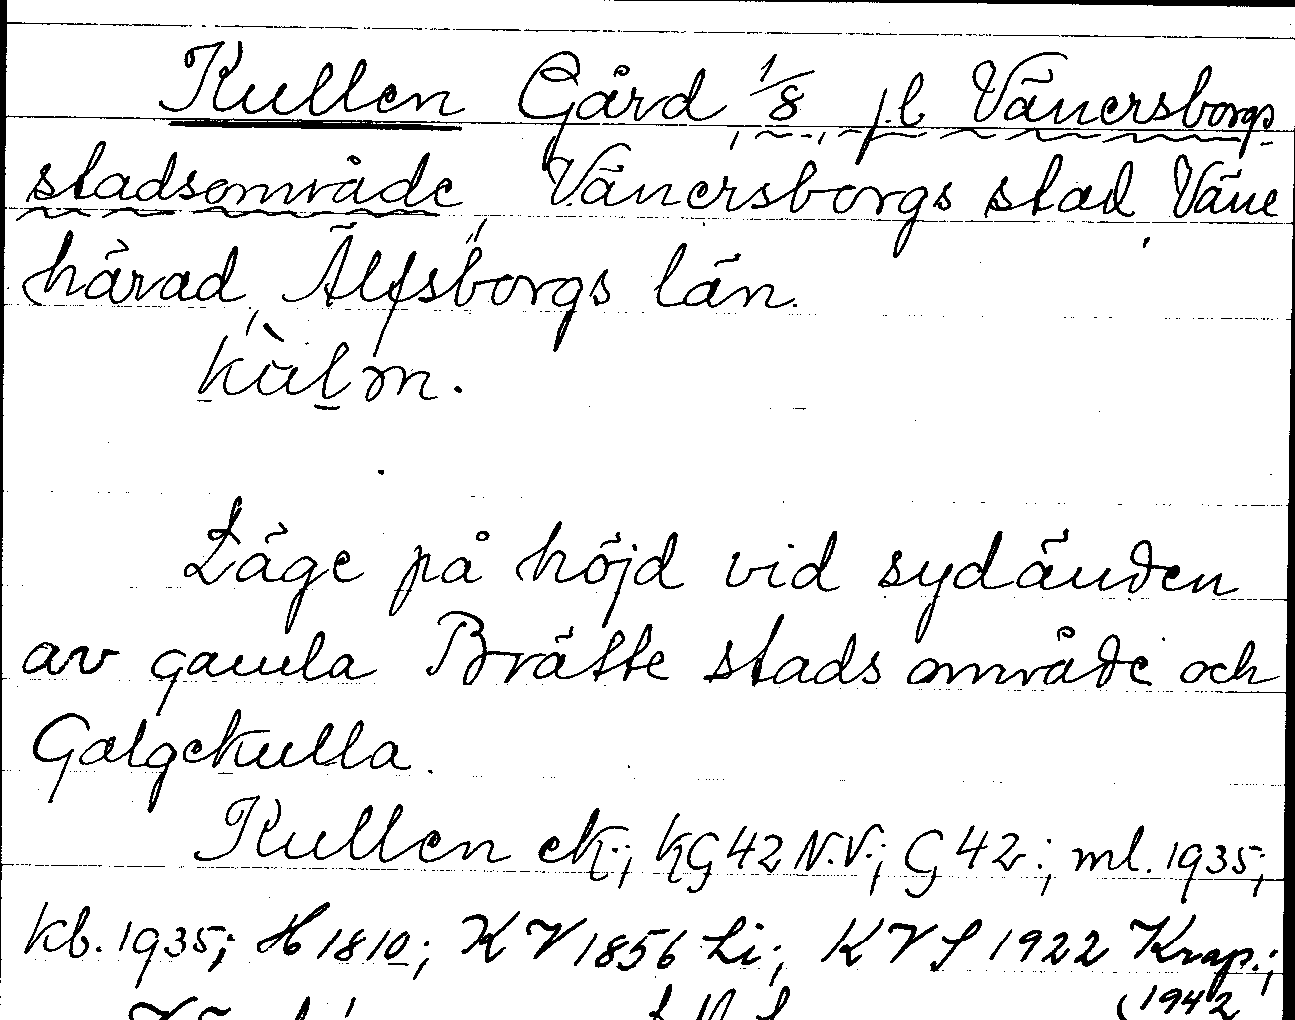 Kullen Gård, 1/8 f.l Vänersborgs
stadsområde, Vänersborgs stad, Väne
härad, Älfsborgs län.
kùlm.
Läge på höjd vid sydänden
av gamla Brätte stadsområde och
Galgekulla.
Kullen ek.; KG 42 N.V.; G 42.; ml. 1935;
kb. 1935; H 1810; KV 1856 Li; KVS 1922 Knap.;
(1942